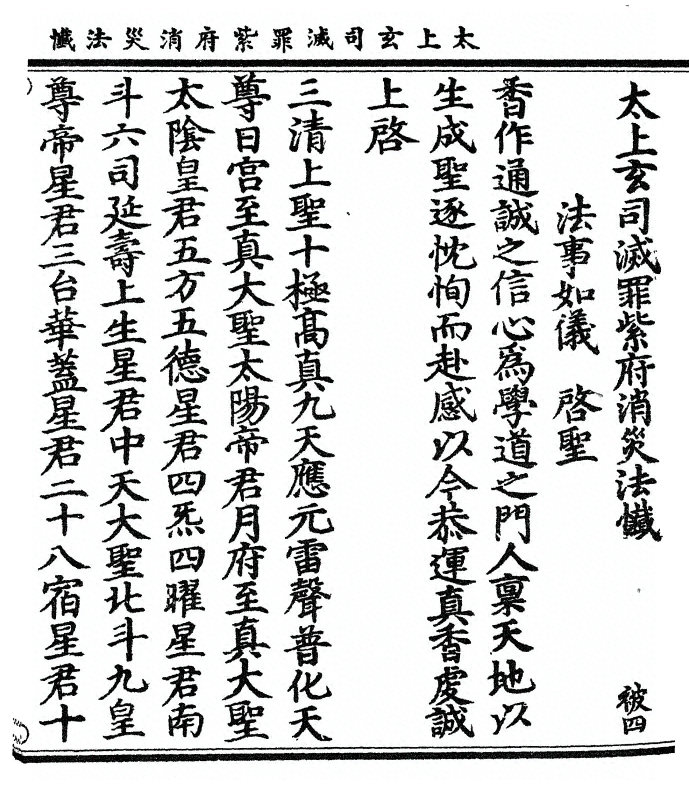 太上玄司滅罪紫府消災法懺
太上玄司滅罪紫府消災法懺
被四
法事如儀 啓聖
香作通誠之信心為學道之門人稟天地以
生成聖逐忱恂而赴感以今恭運真香虔誠
上啓
三清上聖十極高真九天應元雷聲普化天
尊日宮至真大聖太陽帝君月府至真大聖
太陰皇君五方五德星君四炁四曜星君南
斗六司延壽上生星君中天大聖北斗九皇
尊帝星君三台華蓋星君二十八宿星君十